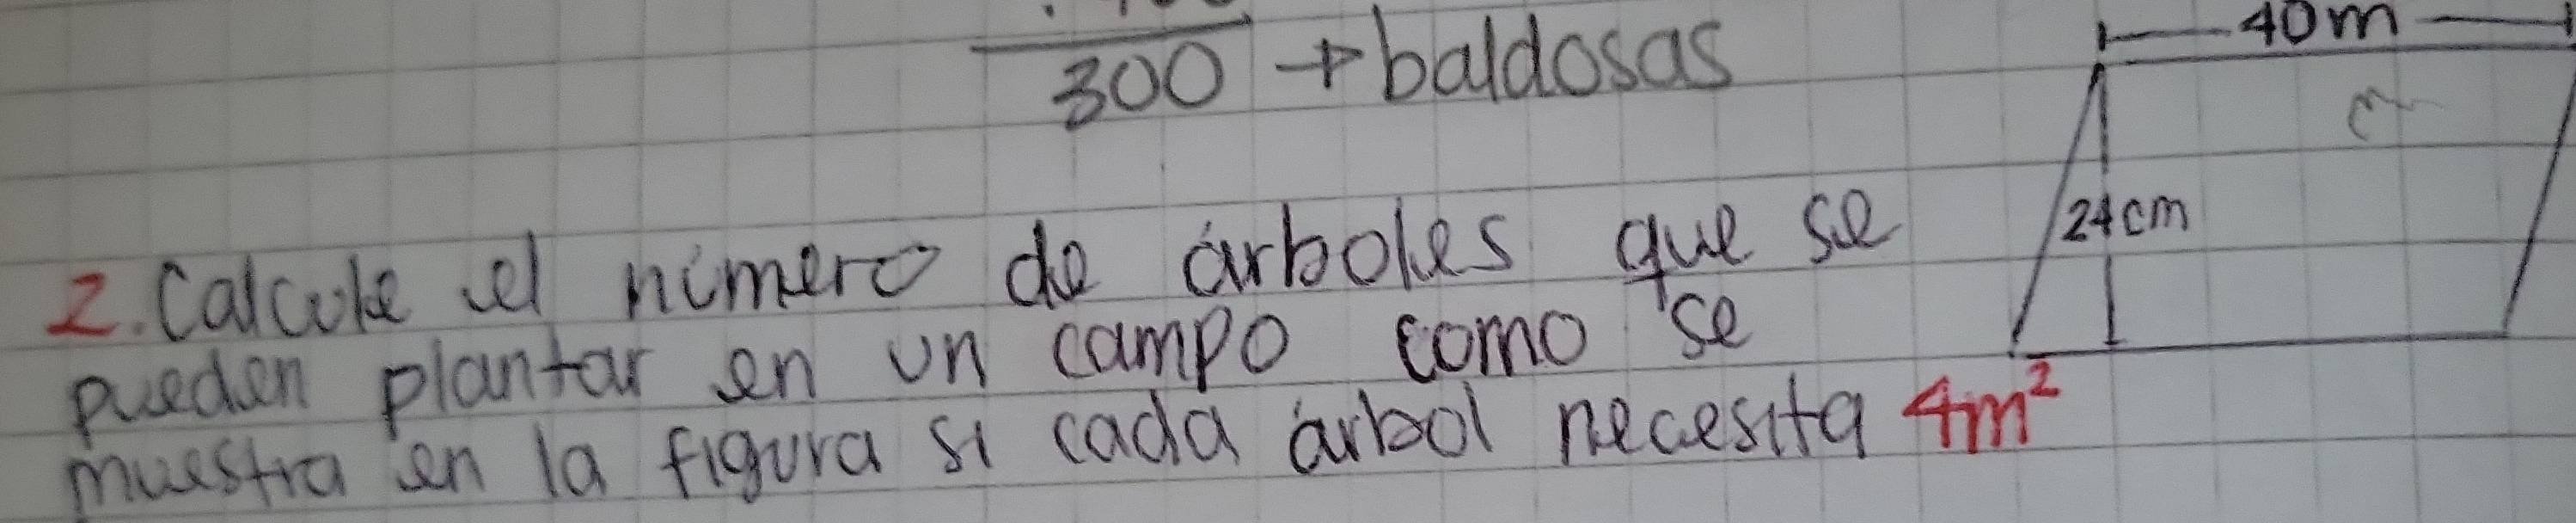 300 → baldosas
40m
24cm
2. Calcule el número de árboles que se
pueden plantar en un campo como se
muestra en la figura si cada árbol necesita 4m²